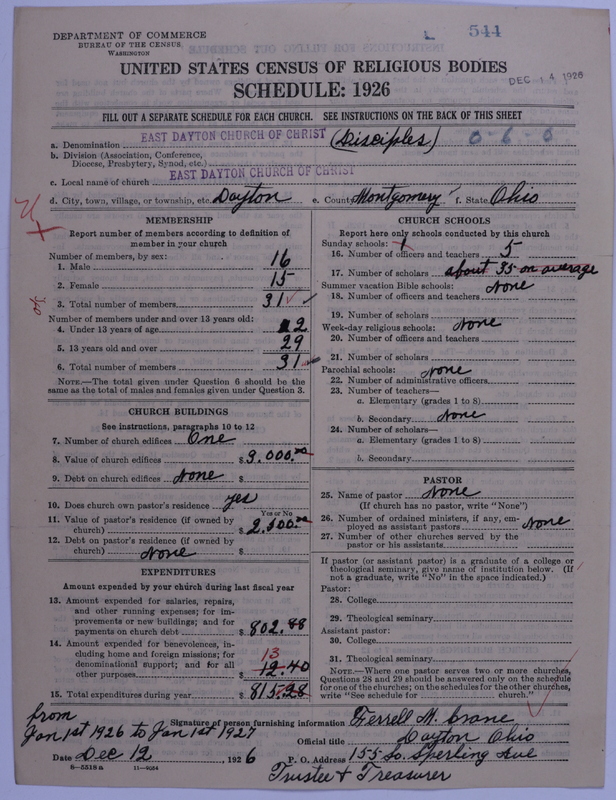 DEPARTMENT OF COMMERCE
BUREAU OF THE CENSUS
WASHINGTON
544
UNITED STATES CENSUS OF RELIGIOUS BODIES
DEC 14 1926
SCHEDULE: 1926
FILL OUT A SEPARATE SCHEDULE FOR EACH CHURCH. SEE INSTRUCTIONS ON THE BACK OF THIS SHEET
a. Denomination EAST DAYTON CHURCH OF CHRIST (Disciples) 0-6-6
b. Division (Association, Conference,
Diocese, Presbytery, Synod, etc.)
c. Local name of church EAST DAYTON CHURCH OF CHRIST
d. City, town, village, or township, etc. Dayton e. County Montgomery f. State Ohio
MEMBERSHIP
Report number of members according to definition of
member in your church
Number of members, by sex:
1. Male 16
2. Female 15
3. Total number of members 31
Number of members under and over 13 years old:
4. Under 13 years of age 2
5. 13 years old and over 29
6. Total number of members 31
NOTE.—The total given under Question 6 should be the
same as the total of males and females given under Question 3.
CHURCH BUILDINGS
See instructions, paragraphs 10 to 12
7. Number of church edifices One
8. Value of church edifices $ 3,000.00
9. Debt on church edifices None $
10. Does church own pastor's residence yes
Yes or No
11. Value of pastor's residence (if owned by
church) $ 2,500.00
12. Debt on pastor's residence (if owned by
church) None $
EXPENDITURES
Amount expended by your church during last fiscal year
13. Amount expended for salaries, repairs,
and other running expenses; for im-
provements or new buildings; and for
payments on church debt $ 802.88
14. Amount expended for benevolences, in-
cluding home and foreign missions; for
denominational support; and for all
other purposes $ 12.40
13
15. Total expenditures during year $ 815.28
CHURCH SCHOOLS
Report here only schools conducted by this church
Sunday schools: 1
16. Number of officers and teachers 5
17. Number of scholars about 35 on average
Summer vacation Bible schools: None
18. Number of officers and teachers
19. Number of scholars
Week-day religious schools: None
20. Number of officers and teachers
21. Number of scholars
Parochial schools: None
22. Number of administrative officers
23. Number of teachers—
a. Elementary (grades 1 to 8)
b. Secondary None
24. Number of scholars—
a. Elementary (grades 1 to 8)
b. Secondary
PASTOR
25. Name of pastor None
(If church has no pastor, write "None")
26. Number of ordained ministers, if any, em-
ployed as assistant pastors None
27. Number of other churches served by the
pastor or his assistants
If pastor (or assistant pastor) is a graduate of a college or
theological seminary, give name of institution below. (If
not a graduate, write "No" in the space indicated.)
Pastor:
28. College
29. Theological seminary
Assistant pastor:
30. College
31. Theological seminary
NOTE.—Where one pastor serves two or more churches,
Questions 28 and 29 should be answered only on the schedule
for one of the churches; on the schedules for the other churches,
write "See schedule for church."
from
Jan 1st 1926 to Jan 1st 1927
Signature of person furnishing information Ferrell M. Crane
Official title Dayton Ohio
Date Dec 12 1926
P. O. Address 155 So. Sperling Ave
8—5518 a 11—9054
Trustee & Treasurer